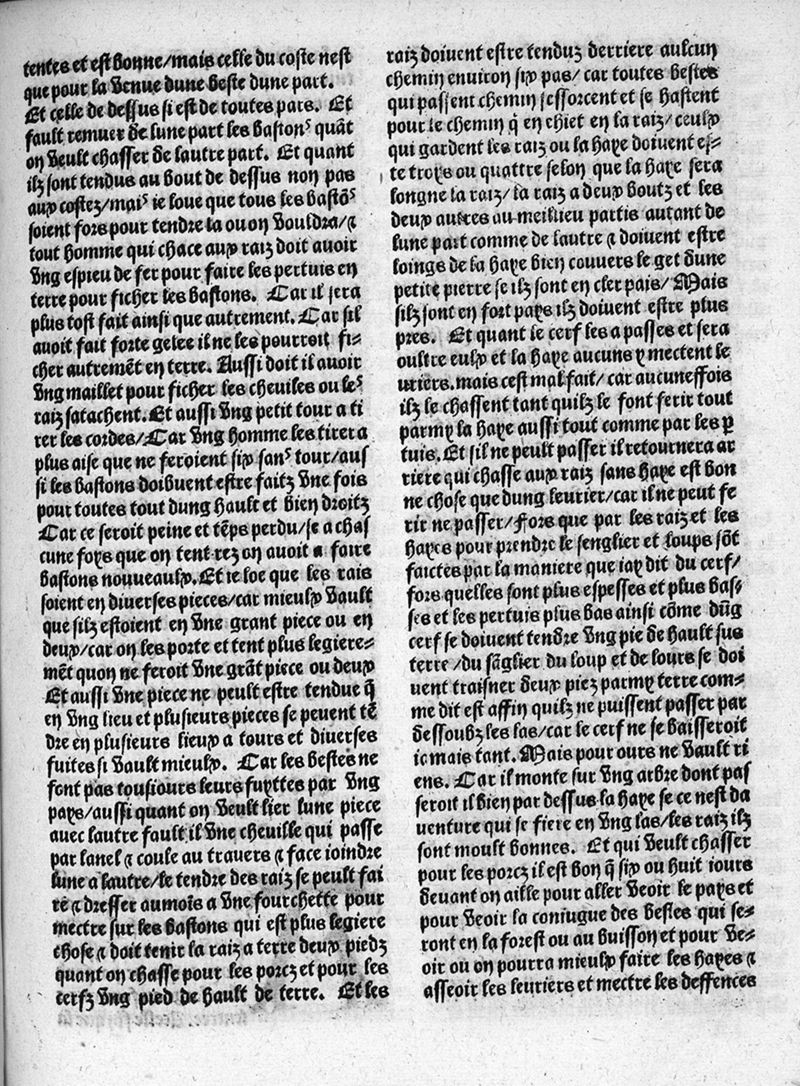 tentes et est bonne/mais celle du coste nest
que pour la venue dune beste dune part.
Et celle de dessus si est de toutes pars. Et
fault remuer de lune part les bastonˢ quāt
on veult chasser de lautre part. Et quant
ilz sont tendus au bout de dessus non pas
aux costez/maiˢ ie loue que tous les bastōˢ
soient fors pour tendre la ou on vouldra/⁊
tout homme qui chace aux raiz doit avoir
vng espieu de fer pour faire les pertuis en
terre pour ficher les bastons. Car il sera
plus tost fait ainsi que autrement. Car sil
avoit fait forte gelee il ne les pourroit fi-
cher autremēt en terre. Aussi doit il avoir
vng maillet pour ficher les cheuiles ou leˢ
raiz satachent. Et aussi vng petit tour a ti
rer les cordes/Car vng homme les tirera
plus aise que ne feroient six sanˢ tour/aus
si les bastons doibuent estre faitz vne fois
pour toutes tout dung hault et bien droitz
Car ce seroit peine et tēps perdu/se a chas
cune foys que on tent rez on avoit a faire
bastons nouueaulx. Et ie loe que les rais
soient en diuerses pieces/car mieulx vault
que silz estoient en vne grant piece ou en
deux/car on les porte et tent plus legiere-
mēt quon ne feroit vne grāt piece ou deux
Et aussi vne piece ne peult estre tendue q̄
en vng lieu et plusieurs pieces se peuent tē
dre en plusieurs lieux a tours et diuerses
fuites si vault mieulx. Car les bestes ne
font pas tousiours leurs fuyttes par vng
pays/aussi quant on veult lier lune piece
avec lautre fault il vne cheuille qui passe
par lanel ⁊ coule au travers ⁊ face ioindre
lune a lautre/le tendre des raiz se peult fai
re ⁊ dresser aumois a vne fourchette pour
mectre sur les bastons qui est plus legiere
chose ⁊ doit tenir la raiz a terre deux piedz
quant on chasse pour les porcz et pour les
cerfz vng pied de hault de terre. Et les
raiz doiuent estre tenduz derriere aulcun
chemin enuiron six pas/car toutes bestes
qui passent chemin sessorcent et se hastent
pour le chemin q̄ en chiet en la raiz/ceulx
qui gardent les raiz ou la haye doiuent es-
te troys ou quattre selon que la haye sera
longne la raiz/la raiz a deux boutz et les
deux autres au meillieu partis autant de
lune part comme de lautre ⁊ doiuent estre
loings de la haye bien couuers le get dune
petite pierre se ilz sont en cler pais/Mais
silz sont en fort pays ilz doiuent estre plus
pres. Et quant le cerf les a passes et sera
oultre eulx et la haye aucuns y mectent le
uriers. mais cest mal fait/car aucuneffois
ilz le chassent tant quilz le font ferir tout
parmy la haye aussi tout comme par les p̱
tuis. Et sil ne peult passer il retournera ar
riere qui chasse aux raiz sans haye est bon
ne chose que dung leurier/car il ne peut fe
rir ne passer/fors que par les raiz et les
hayes pour prendre le senglier et loups sōt
faictes par la maniere que iay dit du cerf/
fors quelles sont plus espesses et plus bas-
ses et les pertuis plus bas ainsi cōme dūg
cerf se doiuent tendre vng pie de hault sus
terre/du sāglier du loup et de lours se doi
uent traisner deux piez parmy terre com-
me dit est affin quilz ne puissent passer par
dessoubz les las/car le cerf ne se baisseroit
iamais tant. Mais pour ours ne vault ri
ens. Car il monte sur vng arbre dont pas
seroit il bien par dessus la haye se ce nest da
venture qui se fiere en vng las/les raiz ilz
sont moult bonnes. Et qui veult chasser
pour les porcz il est bon q̄ six ou huit iours
deuant on aille pour aller veoir le pays et
pour veoir la coniugue des bestes qui se-
ront en la forest ou au buisson et pour ve-
oir ou on pourra mieulx faire les hayes ⁊
asseoir les leuriers et mectre les deffences